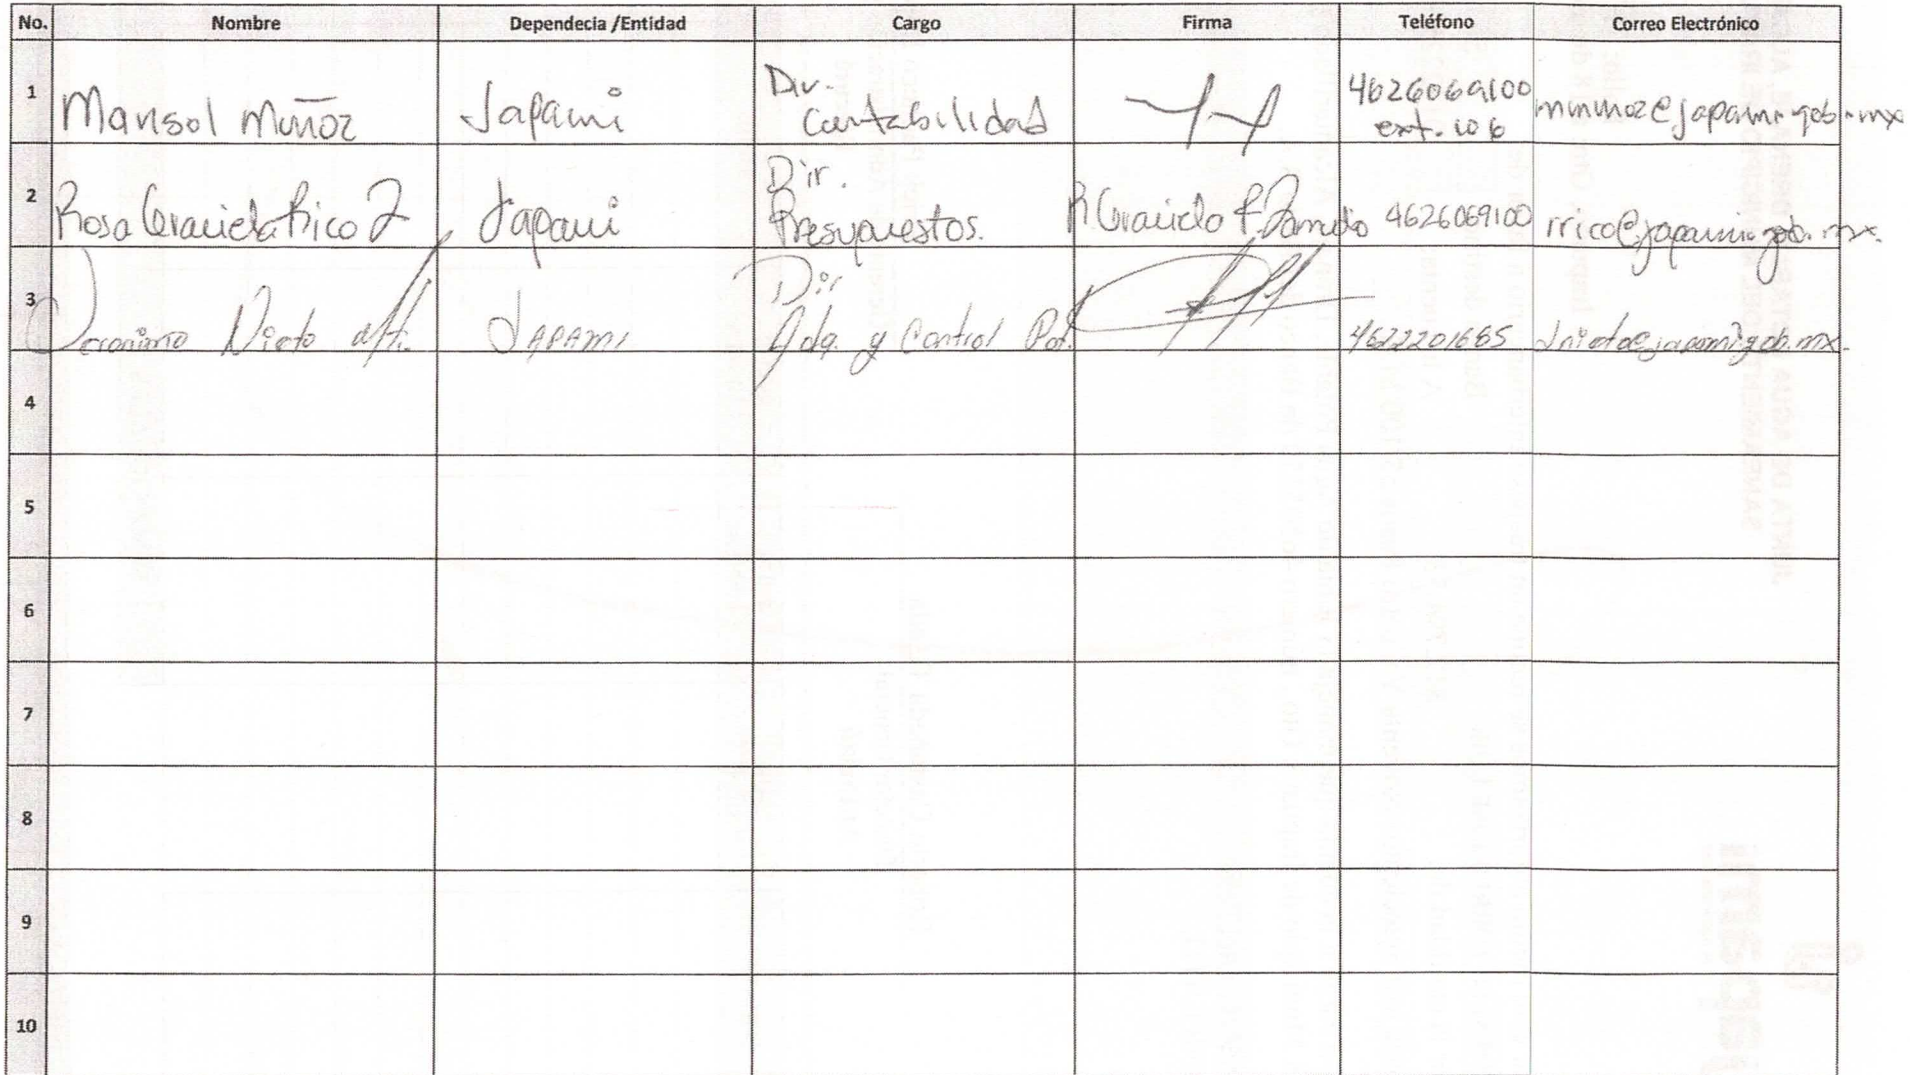 No. Nombre Dependecia /Entidad Cargo Firma Teléfono Correo Electrónico
1 Marisol Muñoz Japami Dir. Contabilidad 4626069100 ext. 106 mmunoz@japami.gob.mx
2 Rosa Graciela Rico Z Japami Dir. Presupuestos. R. Graciela R. Zamudio 4626069100 rrico@japami.gob.mx.
3 Jeronimo Nieto JAPAMI Dir Adq. y Control Pat. 4622201685 Jnieto@japami.gob.mx.
4
5
6
7
8
9
10